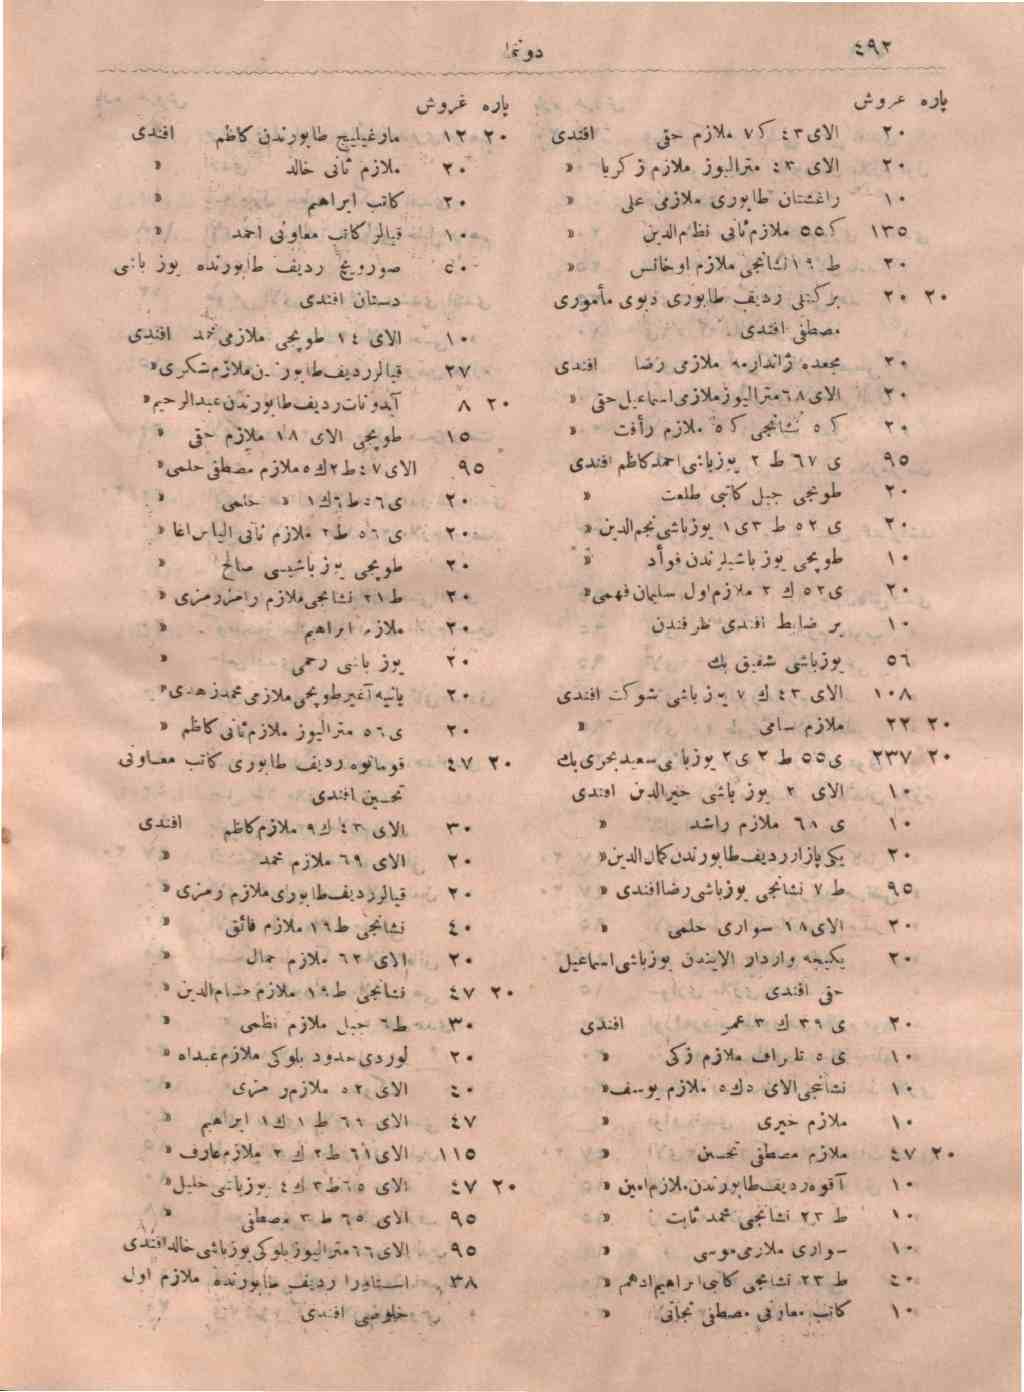 ٤٩٢
دونما
پاره غروش
٢٠ الای ٤٣ ك ٧ ملازم حقی افندی
٢٠ الای ٤٣ مترالیوز ملازم زكریا »
١٠ طابوری ملازمی علی »
١٣٥ ك ٥٥ ملازم ثانی نظام‌الدین »
٢٠ ط ١٩ نشانجی ملازم »
٢٠ ٢٠ ردیف طابوری دبوی مأموری
مصطفی افندی
٣٠ ژاندارمه ملازمی رضا افندی
٢٠ الای ٦٨ مترالیوز ملازمی اسماعیل حقی »
٢٠ ك ٥ نشانجی ك ٥ ملازم رأفت »
٩٥ ی ٦٧ ط ٢ یوزباشی احمد كاظم افندی
٢٠ طوپجی جبل كاتبی طلعت »
٢٠ ی ٥٢ ط ٣ ی ١ یوزباشی نجم‌الدین »
١٠ طوپجی یوزباشیلرندن فوأد »
٢٠ ی ٥٢ ك ٢ ملازم اول سلیمان فهمی »
١٠ بر ضابط افندی طرفندن
٥٦ یوزباشی شفیق بك
١٠٨ الای ٤٣ ك ٧ یوزباشی شوكت افندی
٢٠ ٢٢ ملازم سامی »
٢٠ ٢٣٧ ی ٥٥ ط ٢ ی ٢ یوزباشی سعید بحری بك
١٠ الای ٢ یوزباشی خیرالدین افندی
١٠ ی ٦٨ ملازم راشد »
٢٠ یكی پازار ردیف طابورندن كمال‌الدین »
٩٥ ط ٧ نشانجی یوزباشی رضا افندی »
٢٠ الای ١٨ سواری حلمی »
٢٠ یكیجه واردار الایندن یوزباشی اسماعیل
حقی افندی
٢٠ ی ٣٩ ك ٣ عمر افندی
١٠ ی ٥ تلغراف ملازم زكی »
١٠ نشانجی الای ٥ ك ٥ ملازم یوسف »
١٠ ملازم خیری »
٢٠ ٤٧ ملازم مصطفی تحسین »
١٠ ردیف طابورندن ملازم امین »
١٠ ط ٢٣ نشانجی محمد ثابت »
١٠ سواری ملازمی موسی »
٤٠ ط ٢٣ نشانجی كاتبی ابراهیم ادهم »
١٠ كاتب معاونی مصطفی نجاتی »
پاره غروش
٢٠ ١٢ طابورندن كاظم افندی
٢٠ ملازم ثانی خالد »
٢٠ كاتب ابراهیم »
١٠ قیالر كاتب معاونی احمد »
٥٠ ردیف طابورنده یوزباشی
دستان افندی
١٠ الای ١٤ طوپجی ملازمی محمد افندی
٢٧ قیالر ردیف طابورندن ملازم شكری »
٢٠ ٨ ردیف طابورندن عبدالرحیم »
١٥ طوپجی الای ١٨ ملازم حقی »
٩٥ الای ٤٧ ط ٢ ك ٥ ملازم مصطفی حلمی »
٢٠ ط ٦ ك ١ » حلمی »
٢٠ ی ٥٦ ط ٢ ملازم ثانی الیاس اغا »
٢٠ طوپجی یوزباشیسی صالح »
٢٠ ط ٢١ نشانجی ملازم رمزی »
٢٠ ملازم ابراهیم »
٢٠ یوزباشی رحمی »
٢٠ یانیه آغیر طوپجی ملازمی محمد زهدی »
٢٠ ی ٥٦ مترالیوز ملازم ثانی كاظم »
٢٠ ٤٧ قومانوه ردیف طابوری كاتب معاونی
تحسین افندی
٣٠ الای ٤٣ ك ٩ ملازم كاظم افندی
٢٠ الای ٦٩ ملازم محمد »
٢٠ قیالر ردیف طابوری ملازم رمزی »
٤٠ نشانجی ط ١٩ ملازم فائق »
٢٠ الای ٦٢ ملازم جمال »
٢٠ ٤٧ نشانجی ط ١٩ ملازم حسام‌الدین »
٣٠ ط ٦ جبل ملازم نظمی »
٢٠ حدود بلوكی ملازم عبدالله »
٤٠ الای ٥٢ ملازم رمزی »
٤٧ الای ٦٩ ط ١ ك ١ ابراهیم »
١١٥ الای ٦١ ط ٢ ك ٢ ملازم عارف »
٢٠ ٤٧ الای ٦٥ ط ٣ ك ٤ یوزباشی خلیل »
٩٥ الای ٦٥ ط ٣ مصطفی »
٩٥ الای ٦٦ مترالیوز بلوكی یوزباشی خالد افندی
٣٨ ردیف طابورنده ملازم اول
خلوصی افندی